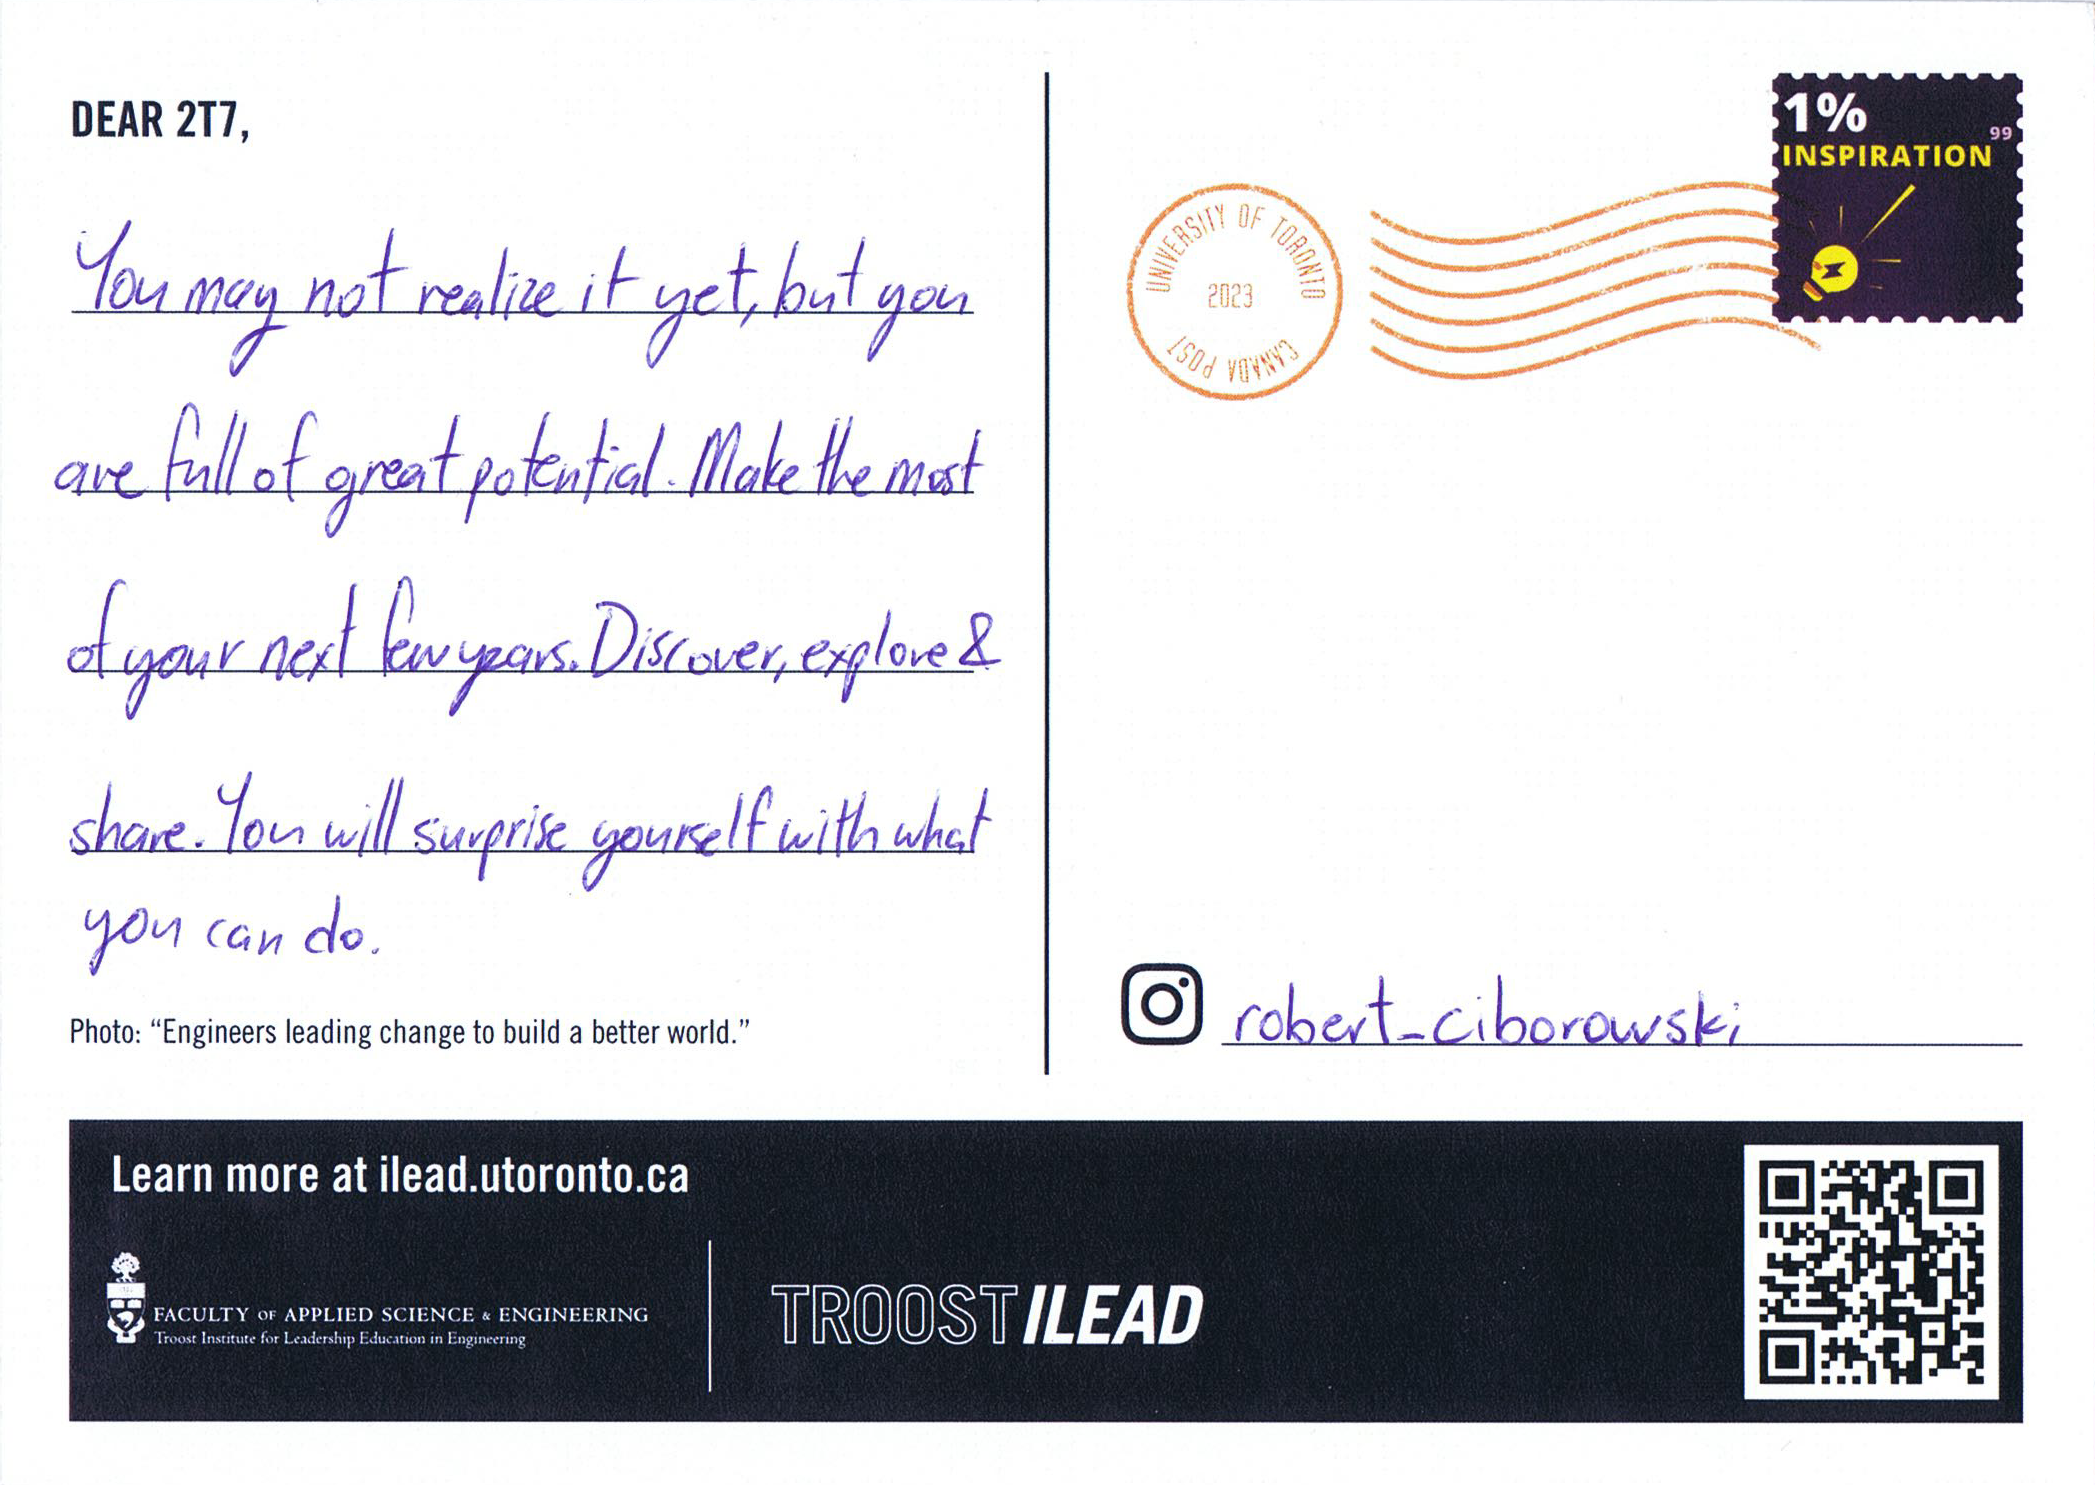 DEAR 2T7,
You may not realize it yet, but you
are full of great potential. Make the most
of your next few years. Discover, explore &
share. You will surprise yourself with what
you can do.
Photo: “Engineers leading change to build a better world.”
1%
99
INSPIRATION
UNIVERSITY OF TORONTO
2023
CANADA POST
robert_ciborowski
Learn more at ilead.utoronto.ca
FACULTY OF APPLIED SCIENCE & ENGINEERING
Troost Institute for Leadership Education in Engineering
TROOST ILEAD